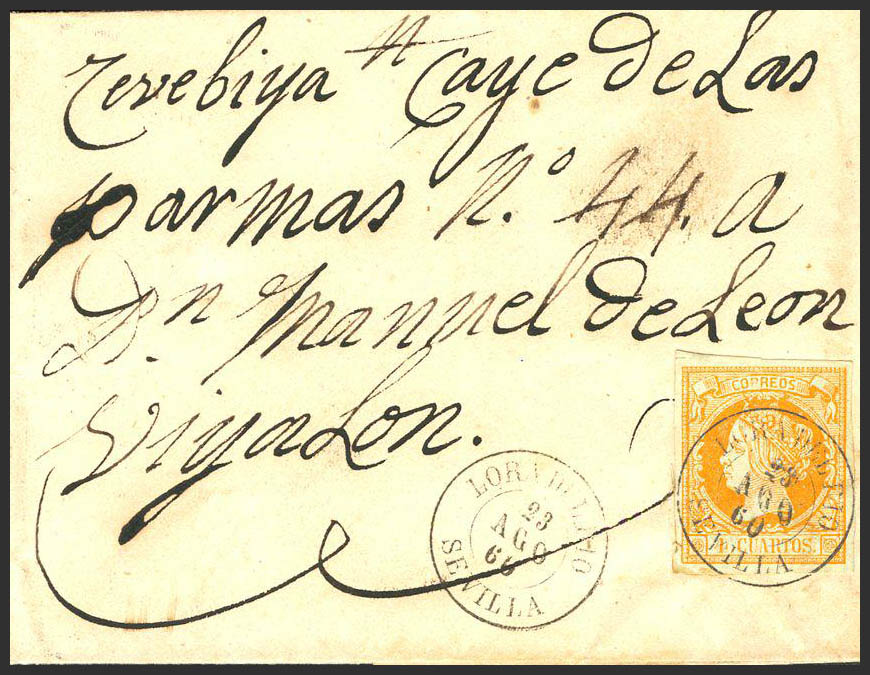 Cevebiya n Caye de Las
parmas N.º 44. a
Dn Manuel de Leon
Viyalon.
LORA DEL RIO
23
AGO
60
SEVILLA
CORREOS
LORA DEL RIO
23
AGO
60
SEVILLA
CUARTOS.